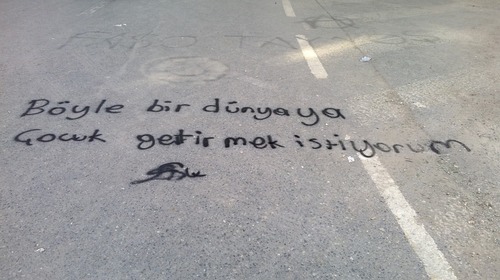 Böyle bir dünyaya
Çocuk getirmek istiyorum